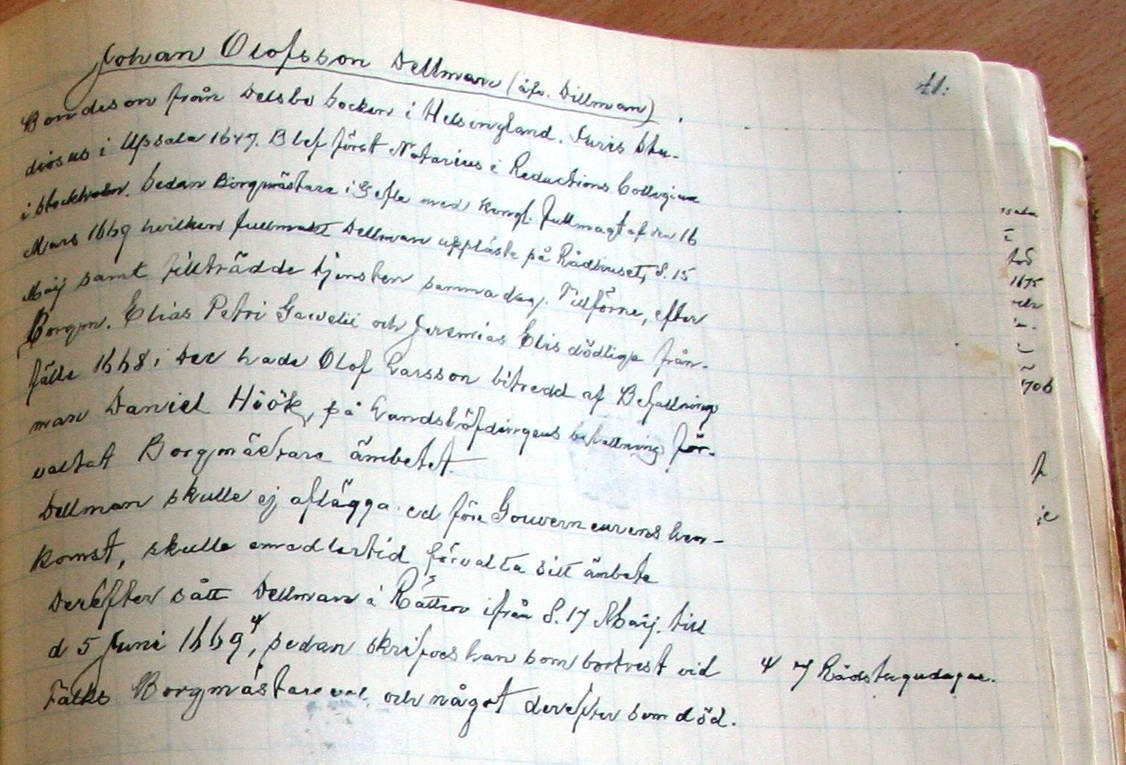 Johan Olofsson Dellman (äfv. Dillman).
41.
Bondeson från Delsbo Socken i Helsingland. Juris Stu-
diosus i Upsala 1647. Blef först Notarius i Reductions Collegium
i Stockholm. Sedan Borgmästare i Gefle med Kongl. fullmagt af den 16
Mars 1669 hvilken fullmakt Dellman uppläste på Rådhuset, d. 15
Maij samt tillträdde tjensten samma dag. Tillförne, efter
Borgm. Elias Petri Gavelii och Jeremias Elis dödliga från-
fälle 1668 i Dec hade Olof Larsson biträdd af Befallning
man Daniel Höök, på Landshöfdingens befallning för-
valtat Borgmästare ämbetet.
Dellman skulle ej aflägga ed före Gouverneurens hem-
komst, skulle emedlertid förvalta sitt ämbete
Derefter satt Dellman i Rätten ifrån d. 17 Maij. till
d 5 Juni 1669, sedan skrifves han som bortrest vid
Falks Borgmästare val, och något derefter som död.
7 Rådstugudagar.
1675